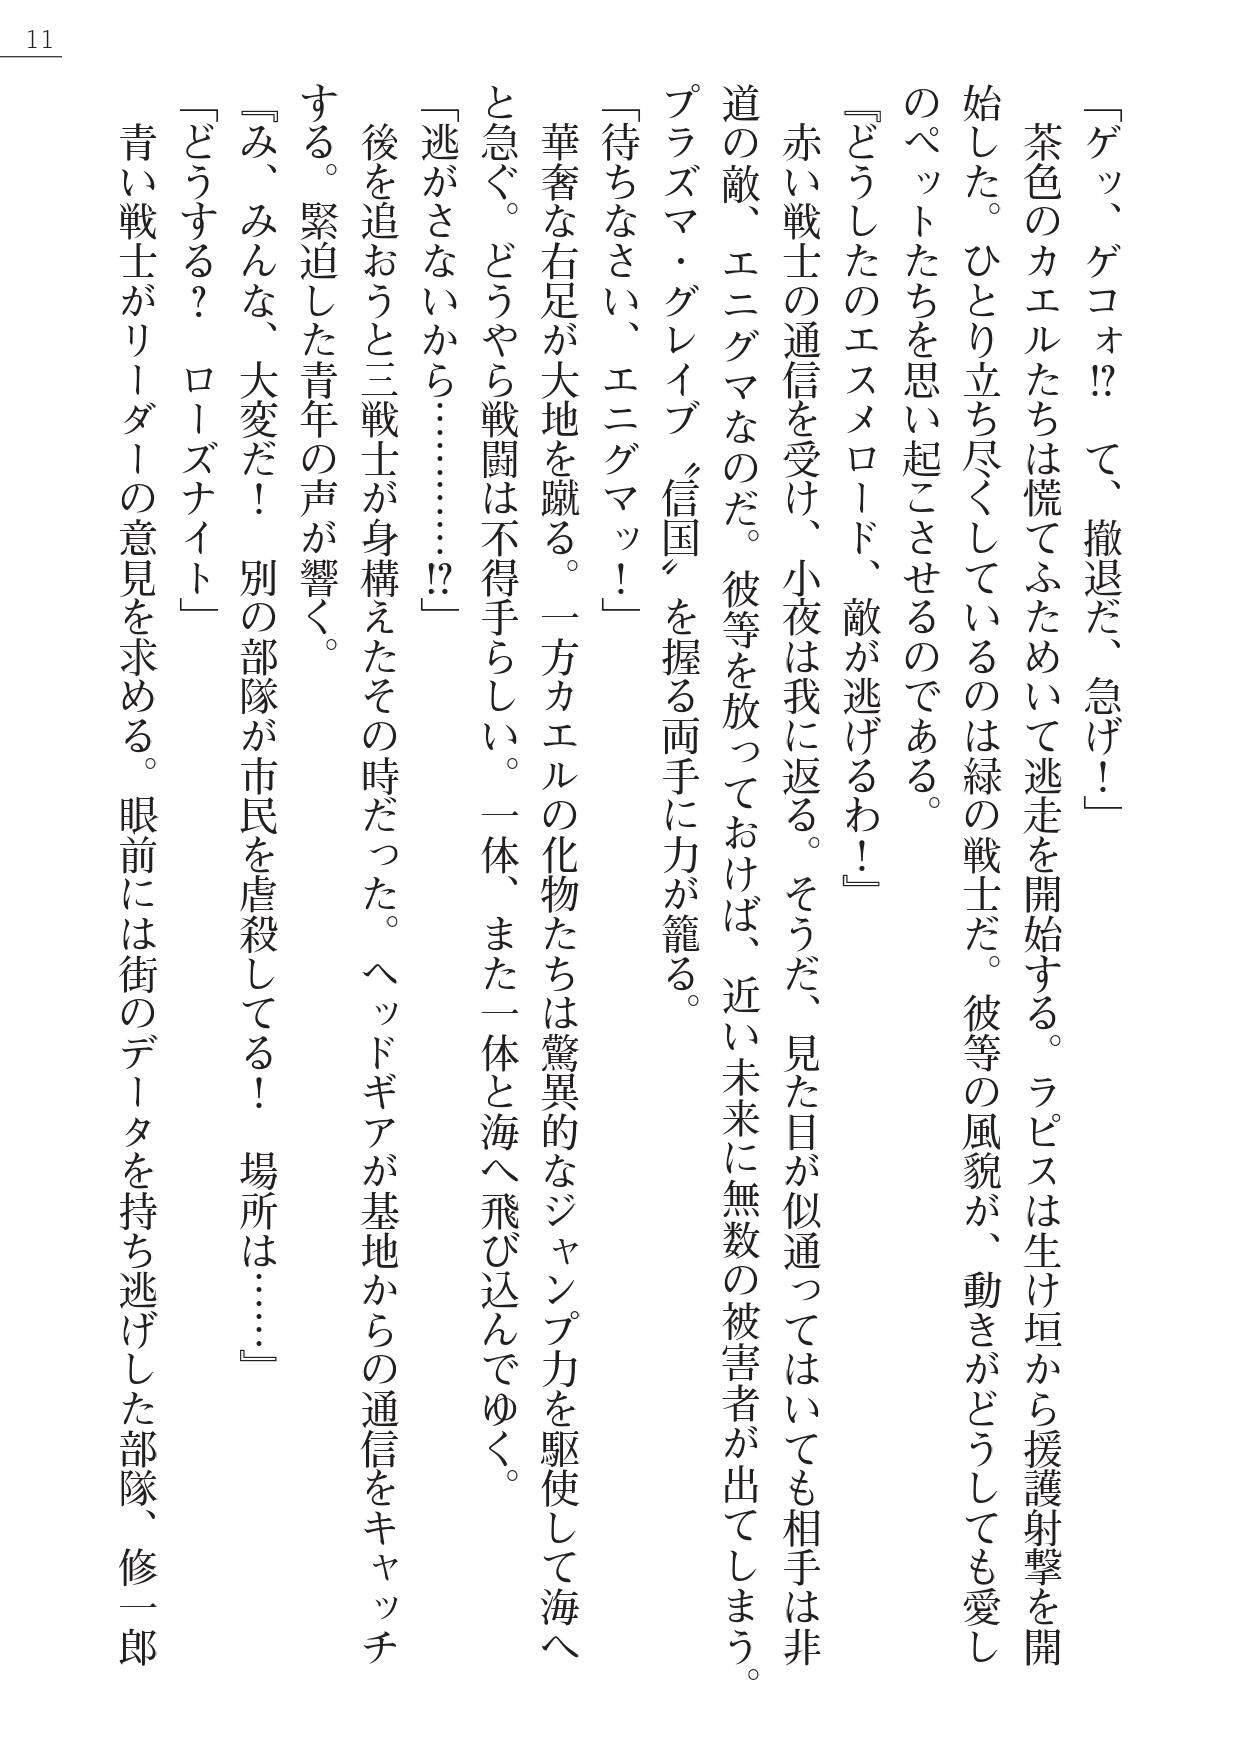 11
「ゲッ、ゲコォ!?　て、撤退だ、急げ！」
　茶色のカエルたちは慌てふためいて逃走を開始する。ラピスは生け垣から援護射撃を開
始した。ひとり立ち尽くしているのは緑の戦士だ。彼等の風貌が、動きがどうしても愛し
のペットたちを思い起こさせるのである。
『どうしたのエスメロード、敵が逃げるわ！』
　赤い戦士の通信を受け、小夜は我に返る。そうだ、見た目が似通ってはいても相手は非
道の敵、エニグマなのだ。彼等を放っておけば、近い未来に無数の被害者が出てしまう。
プラズマ・グレイブ〝信国〟を握る両手に力が籠る。
「待ちなさい、エニグマッ！」
　華奢な右足が大地を蹴る。一方カエルの化物たちは驚異的なジャンプ力を駆使して海へ
と急ぐ。どうやら戦闘は不得手らしい。一体、また一体と海へ飛び込んでゆく。
「逃がさないから…………!?」
　後を追おうと三戦士が身構えたその時だった。ヘッドギアが基地からの通信をキャッチ
する。緊迫した青年の声が響く。
『み、みんな、大変だ！　別の部隊が市民を虐殺してる！　場所は……』
「どうする？　ローズナイト」
　青い戦士がリーダーの意見を求める。眼前には街のデータを持ち逃げした部隊、修一郎